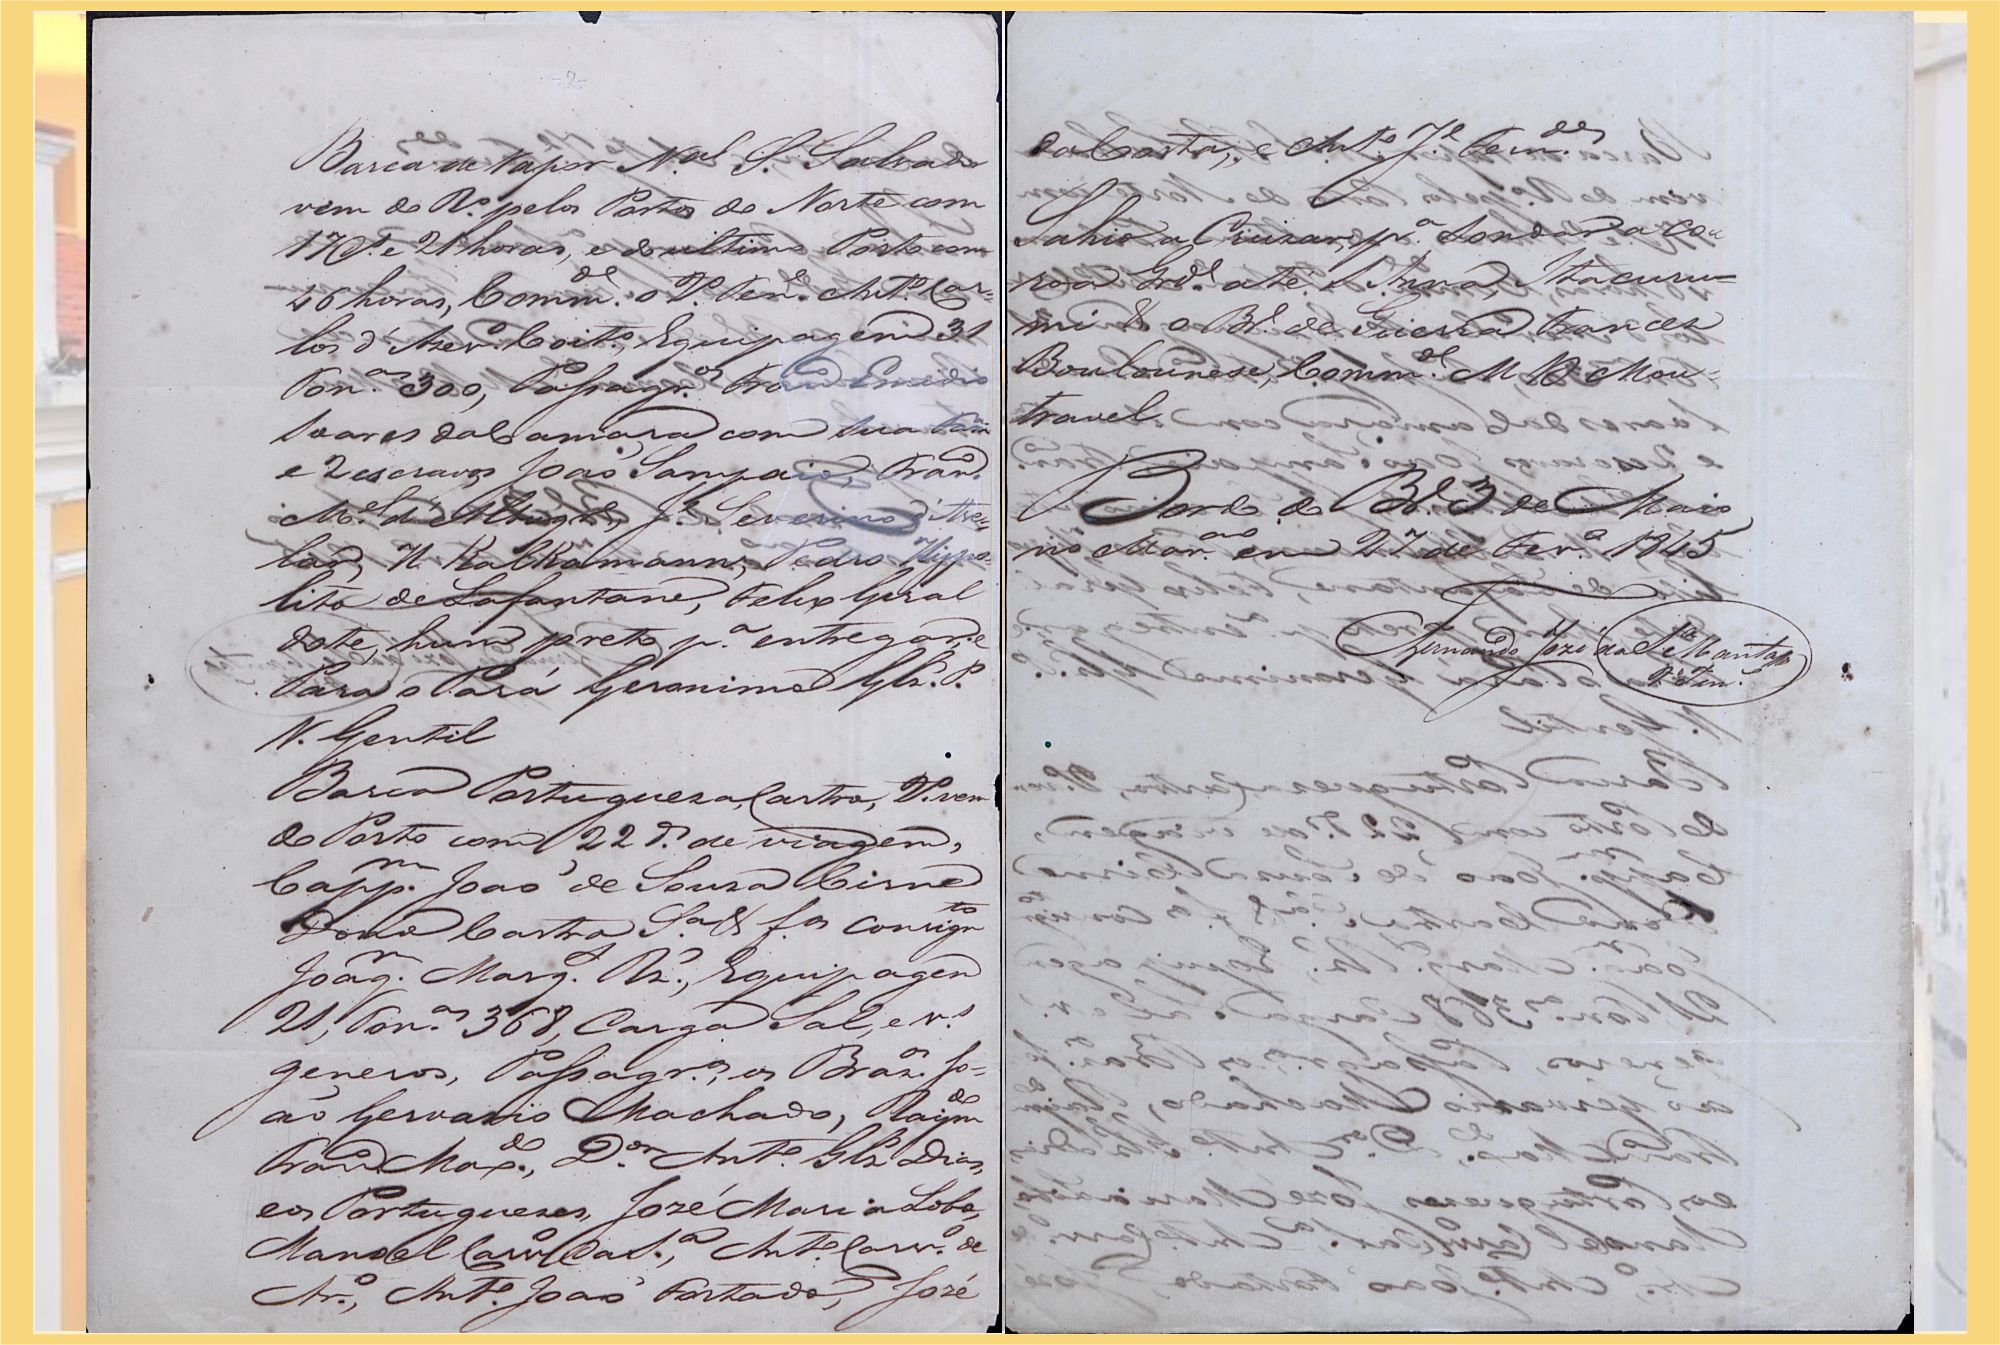 -2-
Barca de Vapor N.al S. Salvador
vem do R.o pelos Portos do Norte com
17 d.s e 21 horas, e do ultimo Porto com
46 horas, Comm.de o 2.o Ten.e Ant.o Car-
los d'Azev.o Coit.o, Equipagem 31
Ton.as 300, Passagr.os Fran.co Emidio
Soares da Camara com sua Fam.a
e 2 escravos João Sampaio, Fran.co
M.el d'Albuq.e, J.e Severino d'Ave-
lar, H. Kalkmann, Pedro Hippo-
lito de Lafontane, Felix Giral
dote, hum preto p.a entregar, e
Para o Pará Geronimo Glz. P.
N. Gentil
Barca Portugueza, Castro, 2.o vem
do Porto com 22 d.s de viagem,
Capp.m João de Souza Cirne
Dono Castro S.a & f.os Consign.to
Joaq.m Marq.s Rz., Equipagem
21, Ton.as 368, Carga Sal, e v.s
generos, Passagr.os, os Braz.os Jo-
ão Gervazio Machado, Raim.do
Fran.co Mac.do, D.or Ant.o Glz. Dias,
e os Portuguezes, José Maria Lobo,
Manoel Carv.o da S.a, Ant.o Carv.o de
Ar.o, Ant.o João Fortado, José
da Costa, e Ant.o J.e Fern.des
Sahio a Cruzar, p.a Sondar a co-
roa Gr.de até S. Anna, Itacuru-
mi & o Br.e de Guerra Francez
Boulounese, Comm.de M R Mou-
travel
Bordo do Br.e 3 de Maio
no Mar.ão em 27 de Fev.o 1845
Fernando José da S.a Mantas
2.o Ten.e